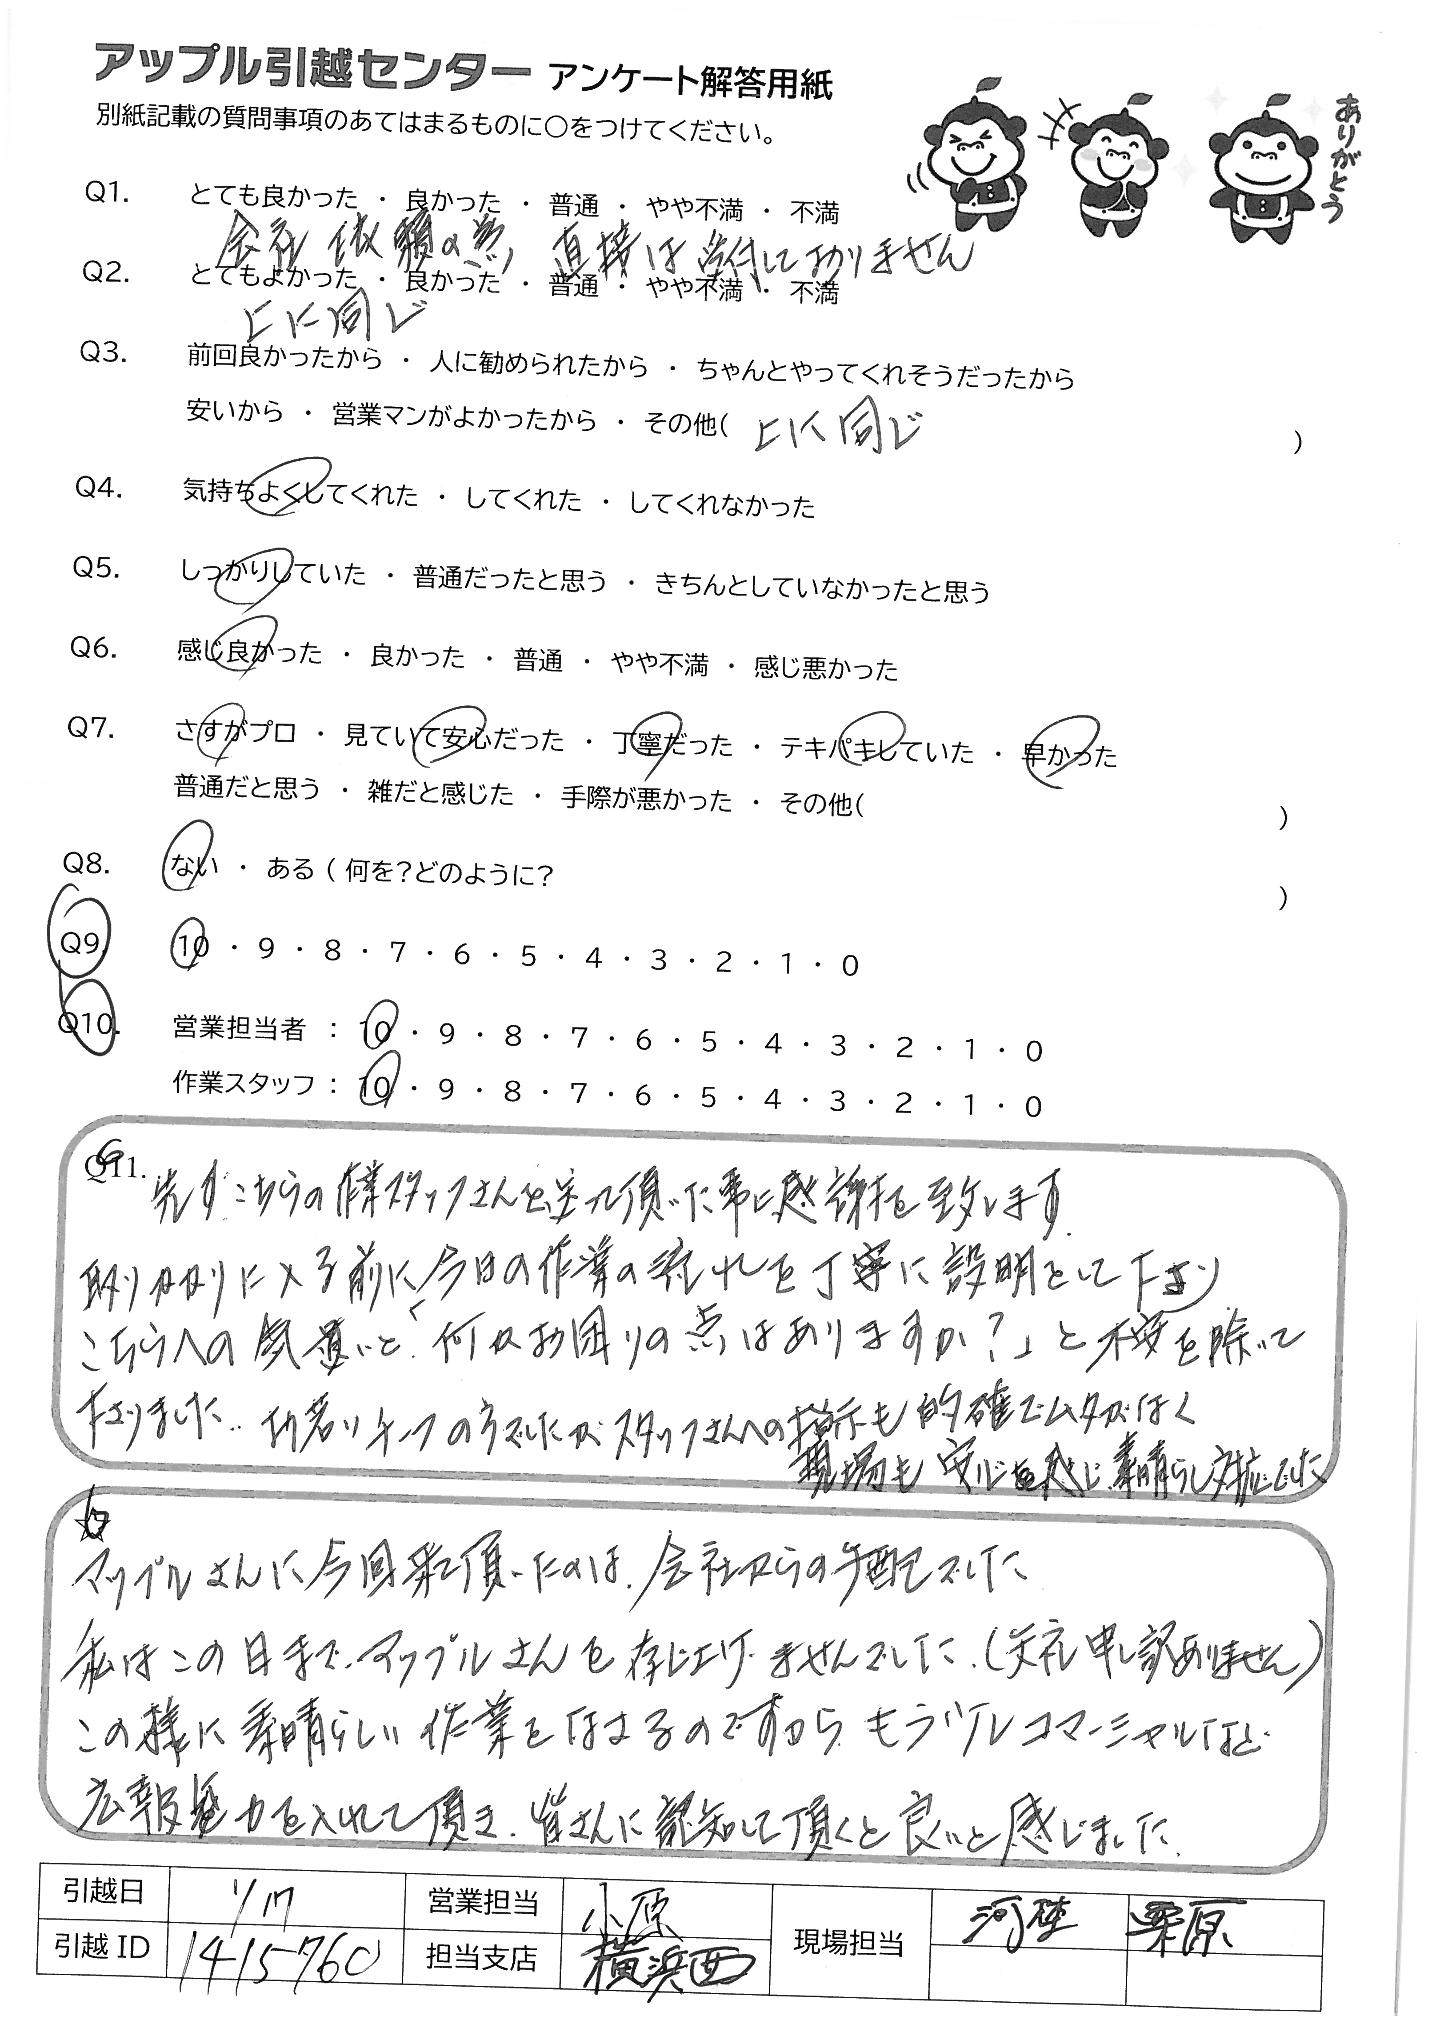 アップル引越センター アンケート解答用紙
別紙記載の質問事項のあてはまるものに○をつけてください。
ありがとう
Q1. とても良かった ・ 良かった ・ 普通 ・ やや不満 ・ 不満
会社依頼の為、直接は受付しておりません
Q2. とてもよかった ・ 良かった ・ 普通 ・ やや不満 ・ 不満
上に同じ
Q3. 前回良かったから ・ 人に勧められたから ・ ちゃんとやってくれそうだったから
安いから ・ 営業マンがよかったから ・ その他( 上に同じ )
Q4. 気持ちよくしてくれた ・ してくれた ・ してくれなかった
Q5. しっかりしていた ・ 普通だったと思う ・ きちんとしていなかったと思う
Q6. 感じ良かった ・ 良かった ・ 普通 ・ やや不満 ・ 感じ悪かった
Q7. さすがプロ ・ 見ていて安心だった ・ 丁寧だった ・ テキパキしていた ・ 早かった
普通だと思う ・ 雑だと感じた ・ 手際が悪かった ・ その他( )
Q8. ない ・ ある ( 何を?どのように? )
Q9. 10 ・ 9 ・ 8 ・ 7 ・ 6 ・ 5 ・ 4 ・ 3 ・ 2 ・ 1 ・ 0
Q10. 営業担当者 : 10 ・ 9 ・ 8 ・ 7 ・ 6 ・ 5 ・ 4 ・ 3 ・ 2 ・ 1 ・ 0
作業スタッフ : 10 ・ 9 ・ 8 ・ 7 ・ 6 ・ 5 ・ 4 ・ 3 ・ 2 ・ 1 ・ 0
Q11. 先ずこちらの作業スタッフさんを送って頂いた事に感謝を致します
取りかかりに入る前に今日の作業の流れを丁寧に説明をして下さり
こちらへの気遣いと「何かお困りの点はありますか?」と不安を除いて
下さりました. お若いチーフの方でしたがスタッフさんへの指示も的確でムダがなく
現場も安心を感じ素晴らし対応でした
☆
アップルさんに今回来て頂いたのは、会社からの手配でした
私はこの日まで、アップルさんを存じ上げませんでした.(失礼申し訳ありません)
この様に素晴らしい作業をなさるのですから、もう少しコマーシャルなど
広報に力を入れて頂き、皆さんに認知して頂くと良いと感じました.
引越日 1/17 営業担当 小原 現場担当 栗原
引越ID 1415760 担当支店 横浜西